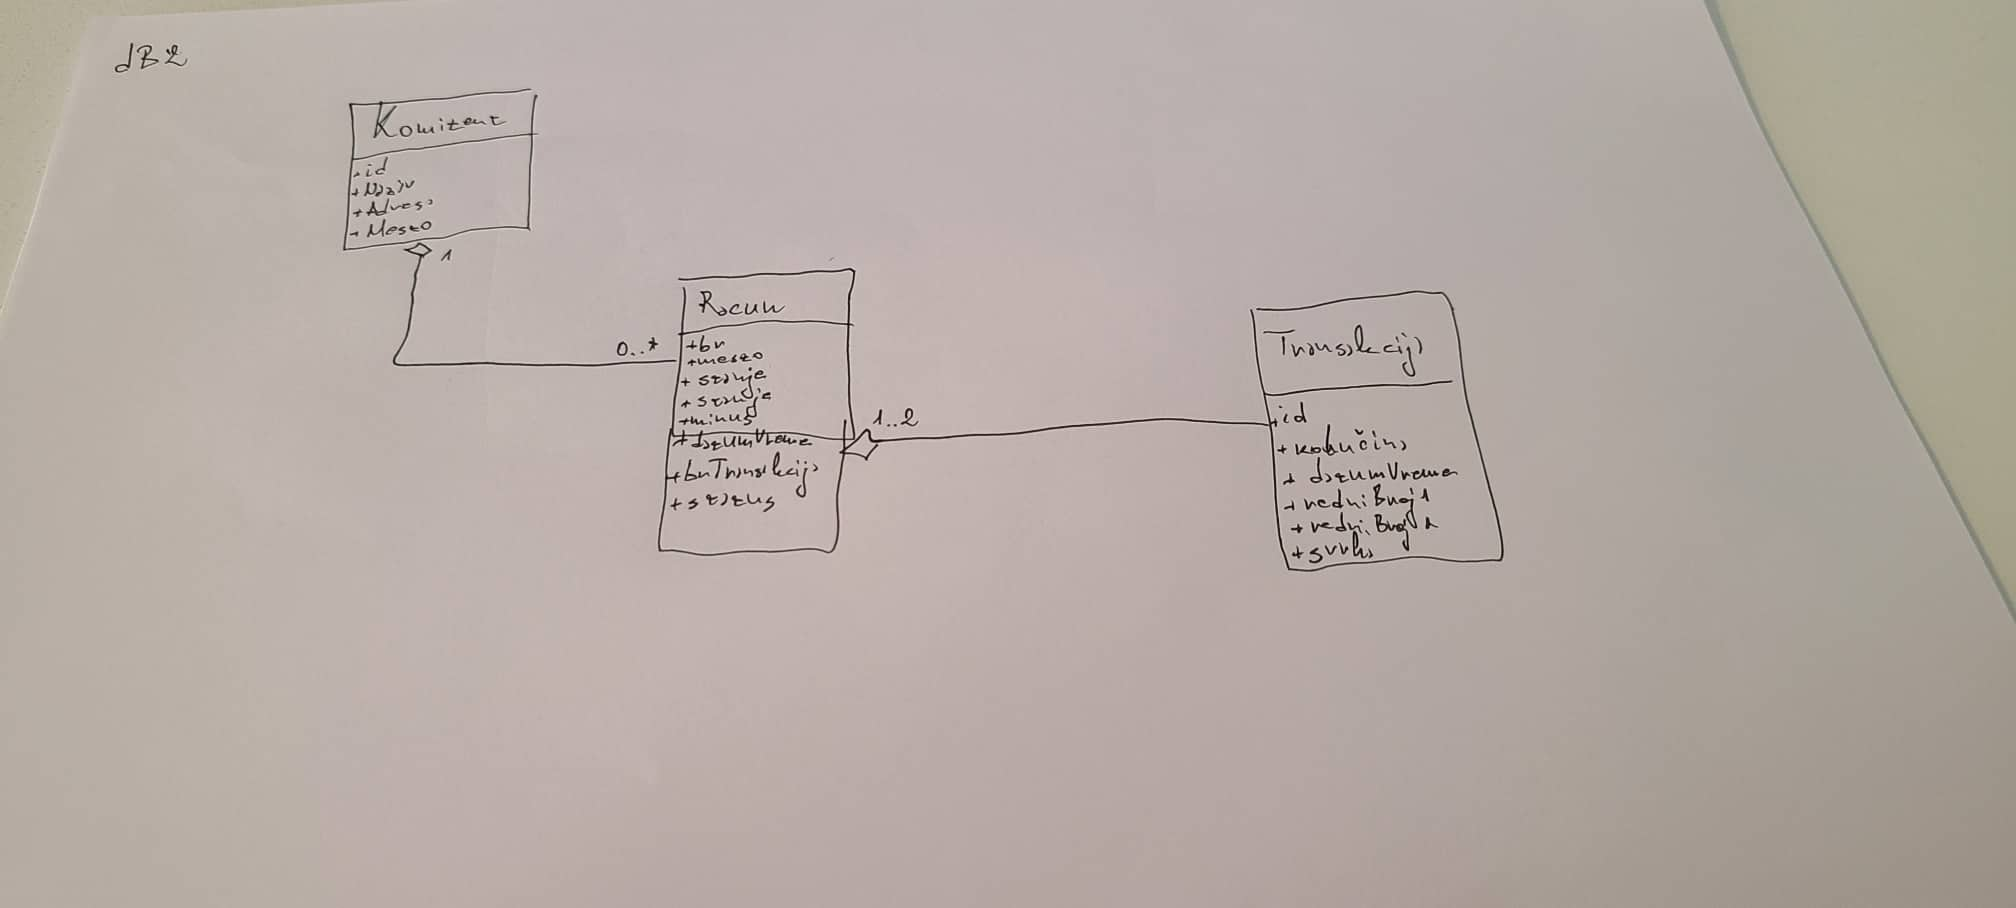 dB2
Komitent
+id
+Naziv
+Adresa
+Mesto
1
0..*
Racun
+br
+mesto
+stanje
+stanje
+minus
+datumVreme
+brTransakcija
+status
1..2
Transakcija
+id
+kolučina
+datumVreme
+redniBroj1
+redniBroj2
+svrha